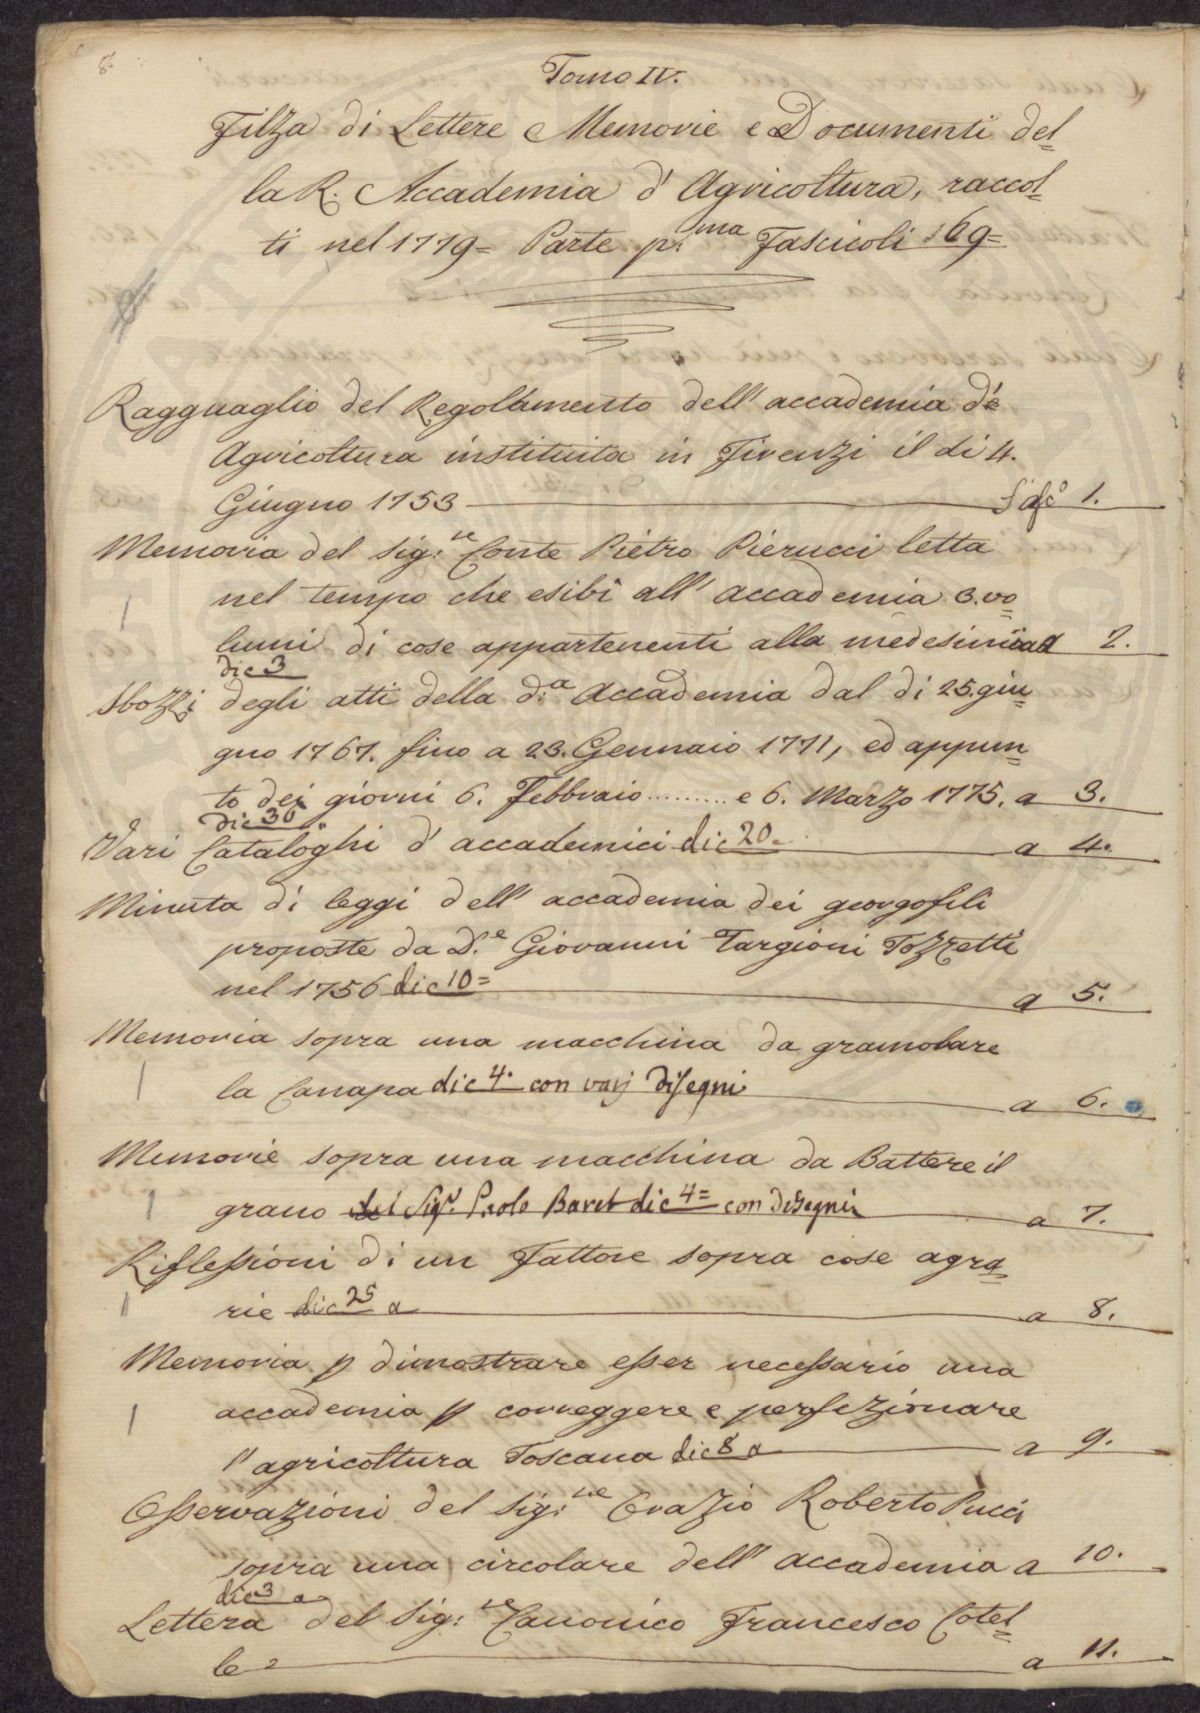 8.
Tomo IV.
Filza di Lettere Memorie e Documenti del=
la R. Accademia d' Agricoltura, raccol=
ti nel 1779= Parte p:ma Fascicoli 169=
Ragguaglio del Regolamento dell' accademia d'
Agricoltura instituita in Firenzi il di 4.
Giugno 1753 Fasc.o 1.
Memoria del Sig:re Conte Pietro Pierucci letta
nel tempo che esibì all' accademia 3. vo=
lumi di cose appartenenti alla medesima a 2.
di c 3
Sbozzi degli atti della d:a Accademia dal di 25. giu=
gno 1767. fino a 23. Gennaio 1771, ed appun=
to dei giorni 6. Febbraio ......... e 6. Marzo 1775. a 3.
di c 30
Vari Cataloghi d' accademici di c 20. a 4.
Minuta di leggi dell' accademia dei georgofili
proposte da D.e Giovanni Targioni Tozzetti
nel 1756 di c 10= a 5.
Memoria sopra una macchina da gramolare
la Canapa di c 4. con varj disegni a 6.
Memorie sopra una macchina da Battere il
grano del Sig.r Paolo Baret di c 4= con disegni a 7.
Riflessioni di un Fattore sopra cose agra=
rie di c 25 a a 8.
Memoria p dimostrare esser necessario una
accademia p correggere e perfezionare
l' agricoltura Toscana di c 8 a a 9.
Osservazioni del Sig:re Orazio Roberto Pucci
sopra una circolare dell' accademia a 10.
di c 3 a
Lettera del Sig:re Canonico Francesco Cotel=
le= a 11.